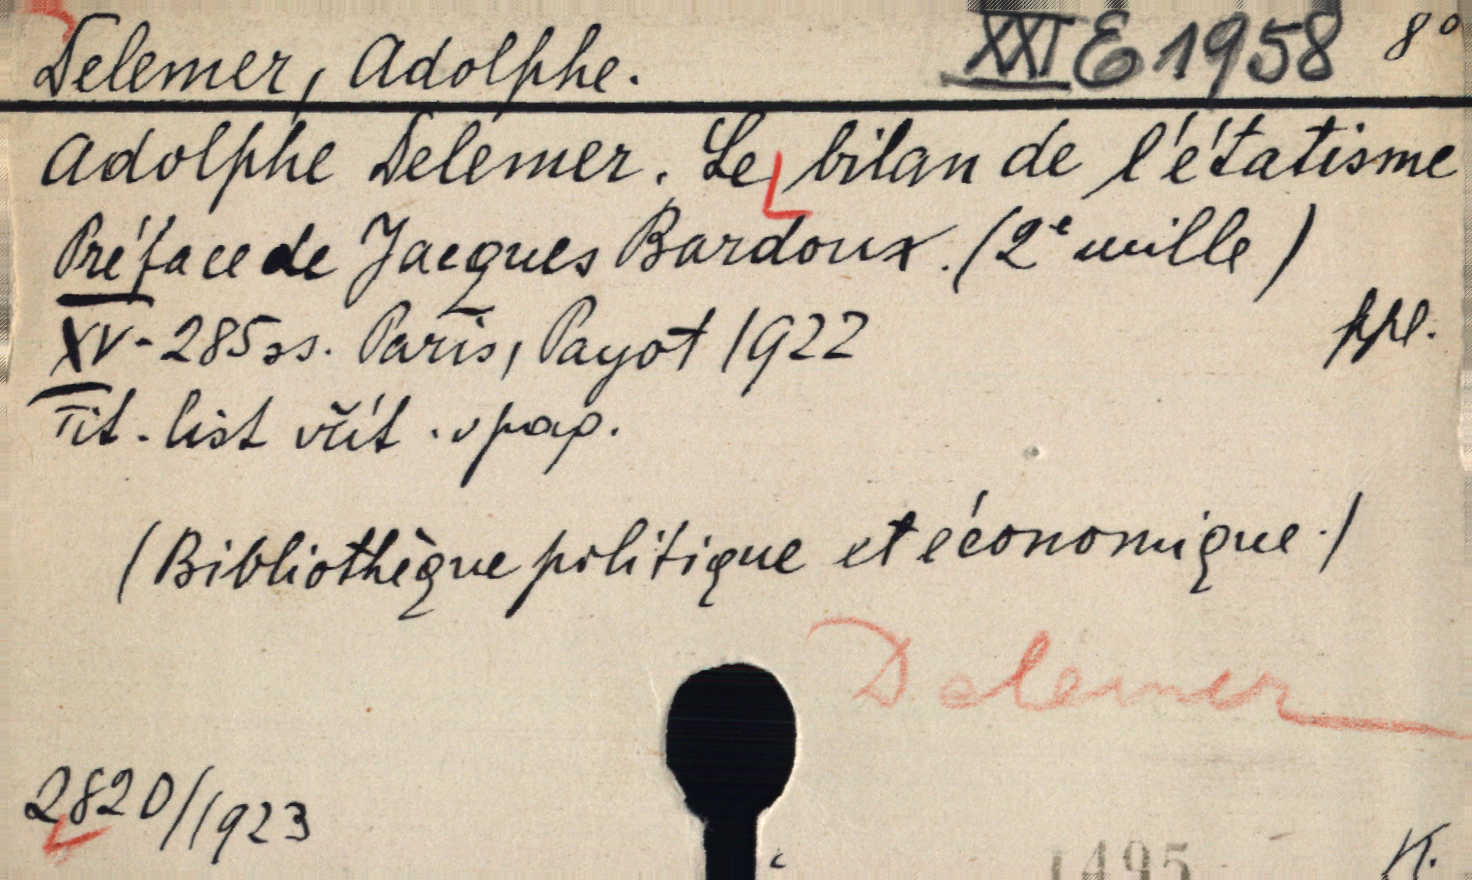 Delemer, Adolphe. XXI E 1958 8°
Adolphe Delemer. Le bilan de l'étatisme
Préface de Jacques Bardoux. (2e mille)
XV-285 ss. Paris, Payot 1922 ppl.
Tit. list vřít. v pag.
(Bibliothèque politique et économique.)
Delemer
2820/1923
1495 K.